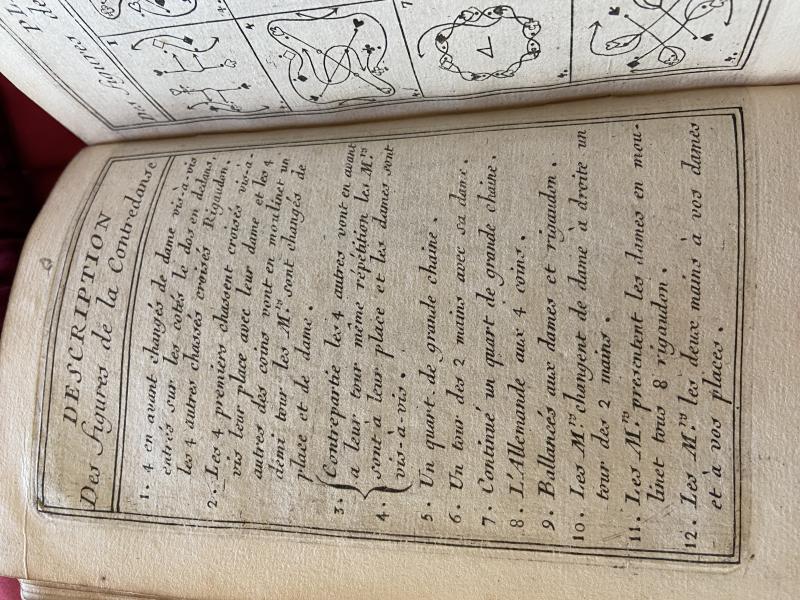 DESCRIPTION
Des figures de la Contredanse
1. 4 en avant changés de dame vis-à-vis
entrés sur les cotés le dos en dedans,
les 4 autres chassés croisés Rigaudon.
2. Les 4 premiers chassent croisés vis-à-
vis leur place avec leur dame et les 4
autres des coins vont en moulinet un
demi tour les M.rs sont changés de
place et de dame.
3. Contrepartie les 4 autres vont en avant
a leur tour même répétition les M.rs
4. sont a leur place et les dames sont
vis-à-vis.
5. Un quart de grande chaine.
6. Un tour des 2 mains avec sa dame.
7. Continué un quart de grande chaine.
8. L'Allemande aux 4 coins.
9. Ballancés aux dames et rigaudon.
10. Les M.rs changent de dame à droite un
tour des 2 mains.
11. Les M.rs presentent les dames en mou-
linet tous 8 rigaudon.
12. Les M.rs les deux mains à vos dames
et à vos places.